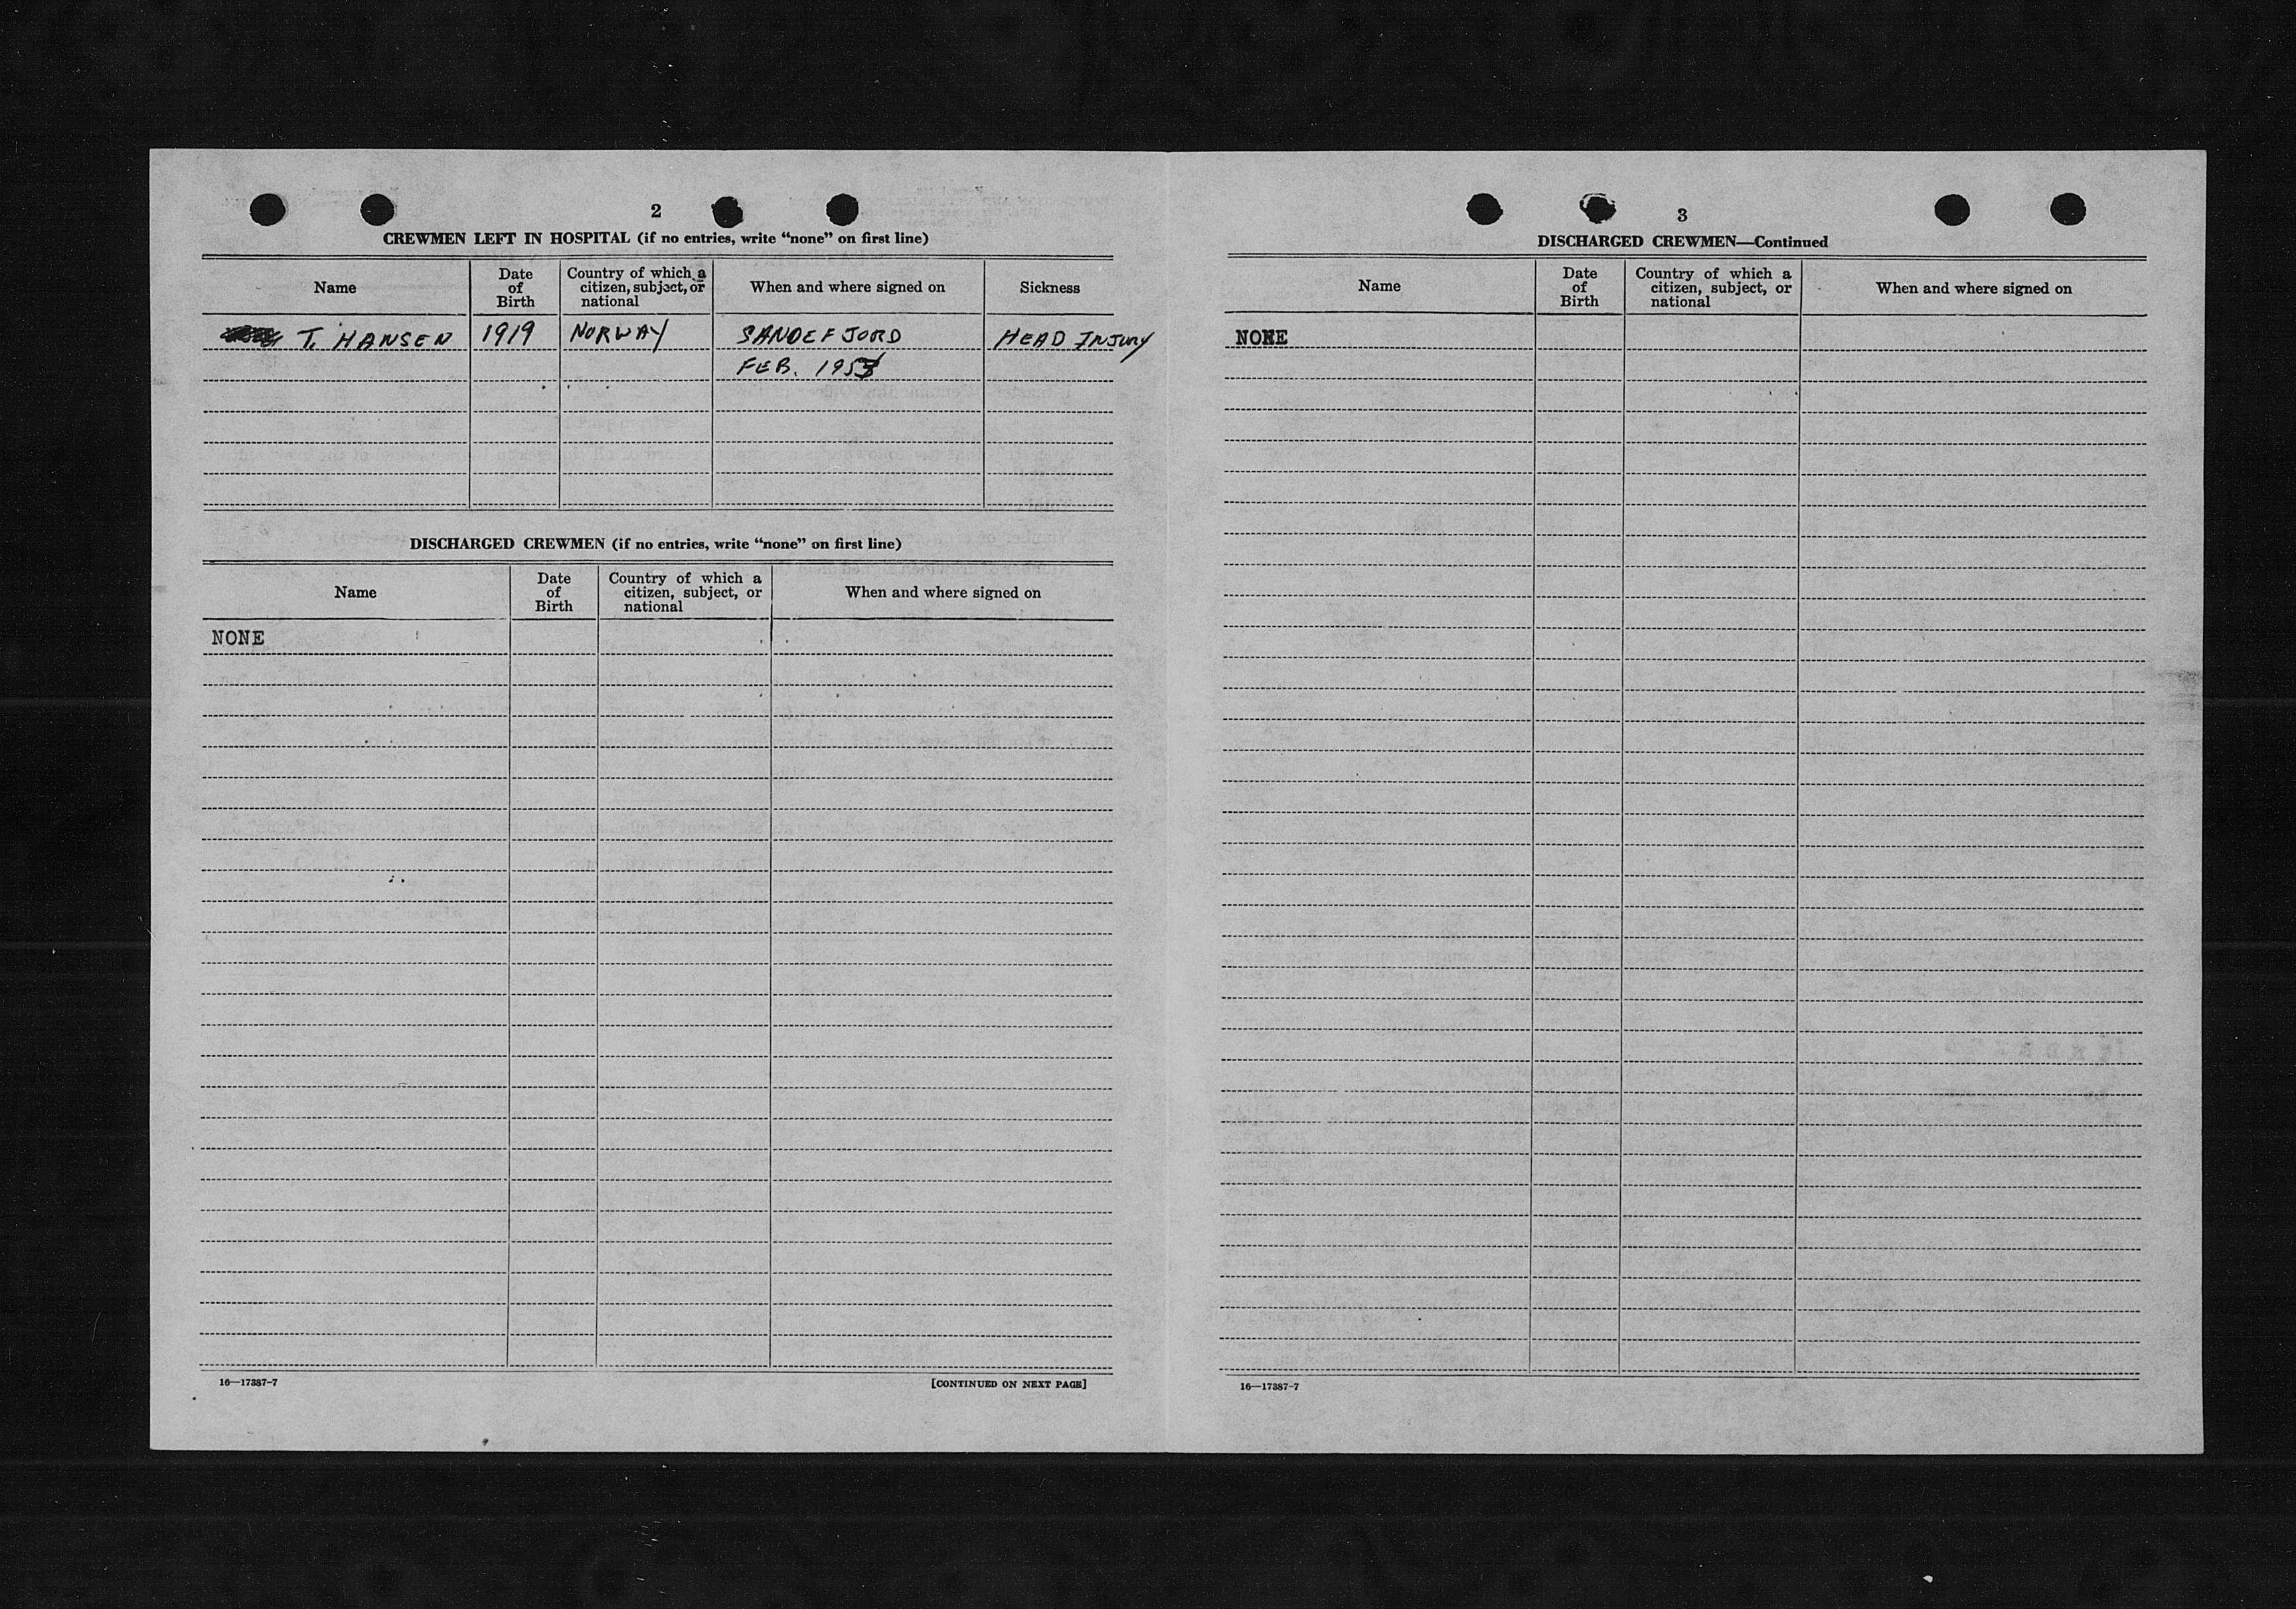 2
CREWMEN LEFT IN HOSPITAL (if no entries, write “none” on first line)
Name Date of Birth Country of which a citizen, subject, or national When and where signed on Sickness
T. HANSEN 1919 NORWAY SANDEFJORD HEAD INJURY
FEB. 1953
DISCHARGED CREWMEN (if no entries, write “none” on first line)
Name Date of Birth Country of which a citizen, subject, or national When and where signed on
NONE
16—17387-7 [CONTINUED ON NEXT PAGE]
3
DISCHARGED CREWMEN—Continued
Name Date of Birth Country of which a citizen, subject, or national When and where signed on
NONE
16—17387-7